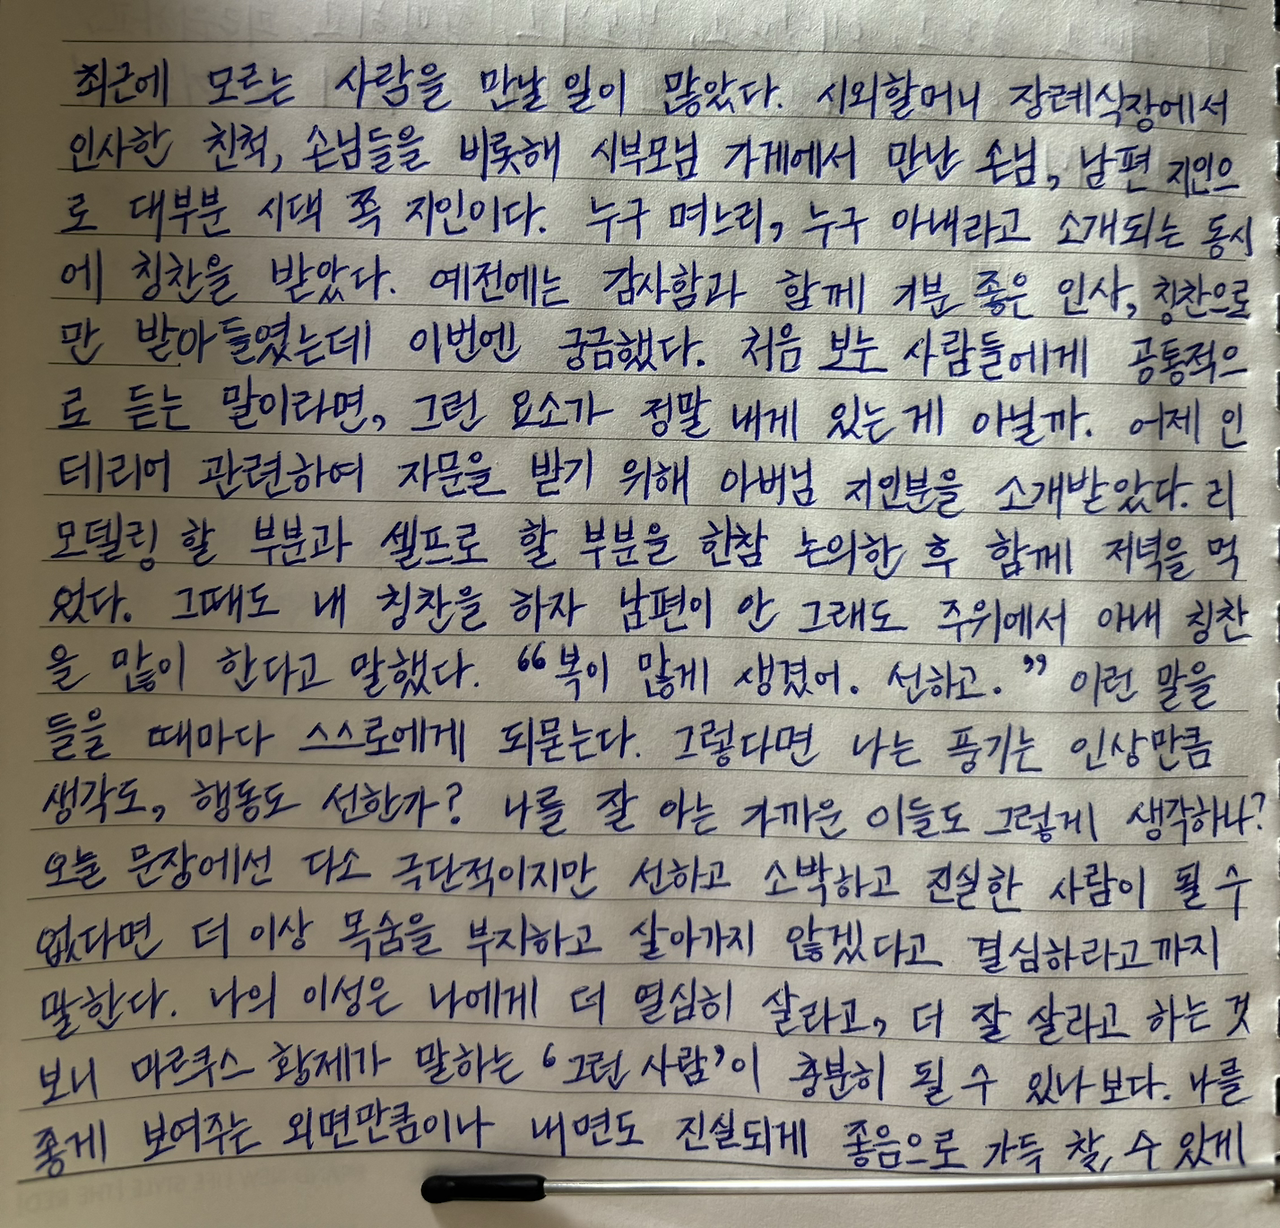 최근에 모르는 사람을 만날 일이 많았다. 시외할머니 장례식장에서
인사한 친척, 손님들을 비롯해 시부모님 가게에서 만난 손님, 남편 지인으
로 대부분 시댁 쪽 지인이다. 누구 며느리, 누구 아내라고 소개되는 동시
에 칭찬을 받았다. 예전에는 감사함과 함께 기분 좋은 인사, 칭찬으로
만 받아들였는데 이번엔 궁금했다. 처음 보는 사람들에게 공통적으
로 듣는 말이라면, 그런 요소가 정말 내게 있는 게 아닐까. 어제 인
테리어 관련하여 자문을 받기 위해 아버님 지인분을 소개받았다. 리
모델링 할 부분과 셀프로 할 부분을 한참 논의한 후 함께 저녁을 먹
었다. 그때도 내 칭찬을 하자 남편이 안 그래도 주위에서 아내 칭찬
을 많이 한다고 말했다. “복이 많게 생겼어. 선하고.” 이런 말을
들을 때마다 스스로에게 되묻는다. 그렇다면 나는 풍기는 인상만큼
생각도, 행동도 선한가? 나를 잘 아는 가까운 이들도 그렇게 생각하나?
오늘 문장에선 다소 극단적이지만 선하고 소박하고 진실한 사람이 될 수
없다면 더 이상 목숨을 부지하고 살아가지 않겠다고 결심하라고까지
말한다. 나의 이성은 나에게 더 열심히 살라고, 더 잘 살라고 하는 것
보니 마르쿠스 황제가 말하는 ‘그런 사람’이 충분히 될 수 있나보다. 나를
좋게 보여주는 외면만큼이나 내면도 진실되게 좋음으로 가득 찰 수 있게